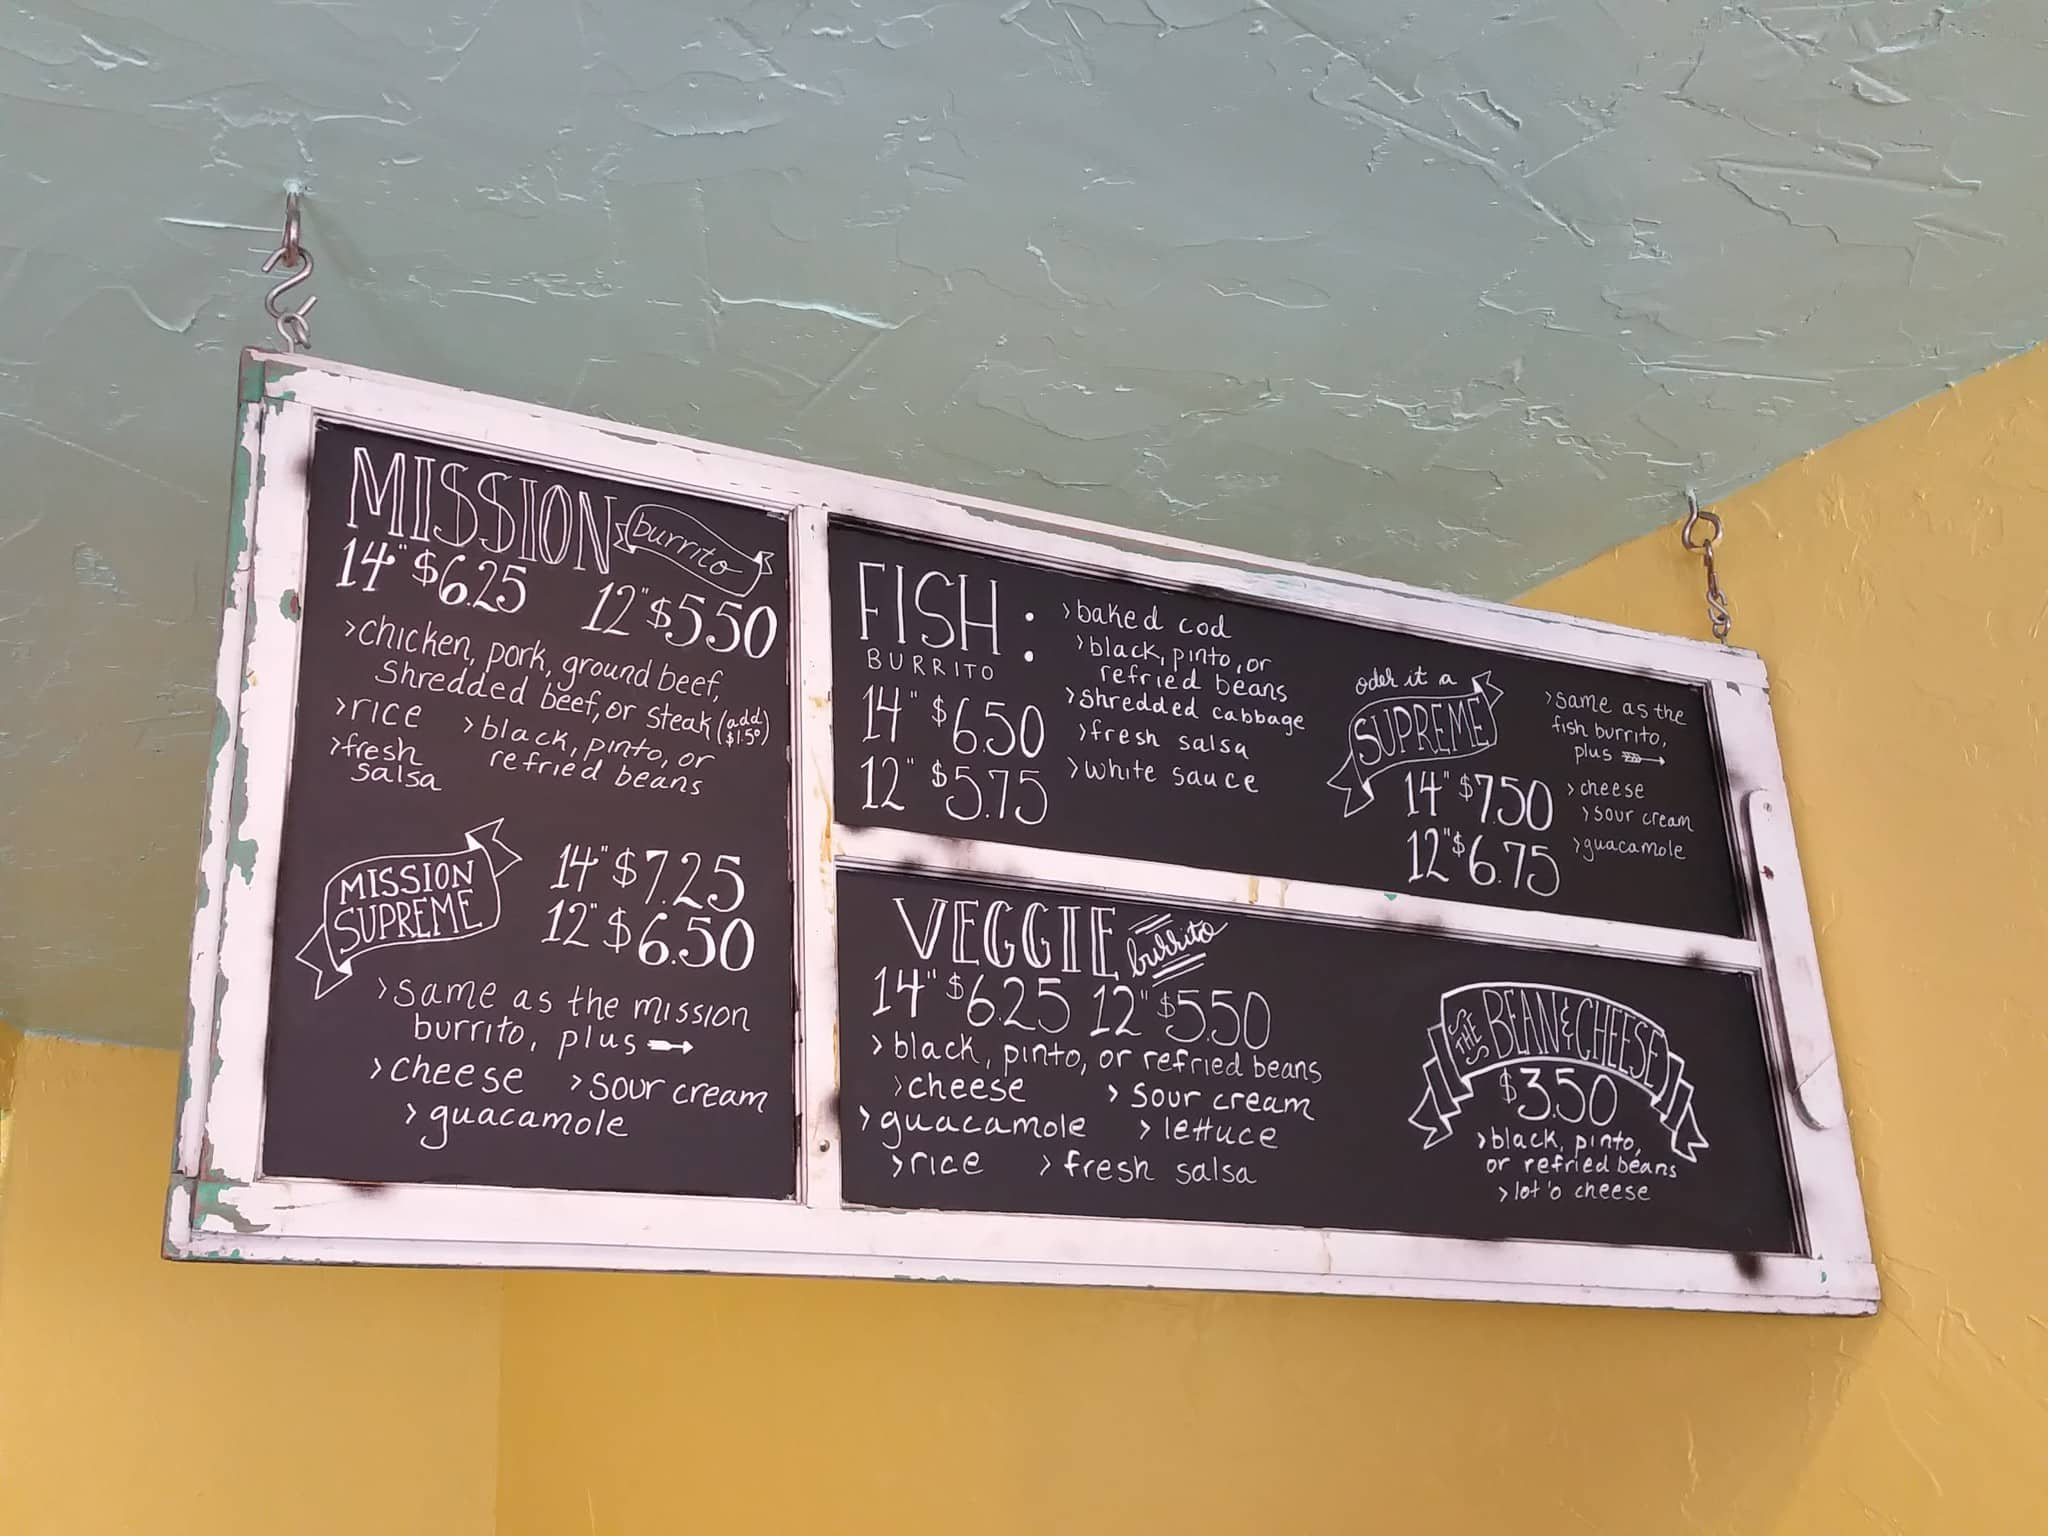 MISSION burrito
14" $6.25 12" $5.50
>chicken, pork, ground beef,
shredded beef, or steak (add $1.50)
>rice >black, pinto, or
refried beans
>fresh
salsa
MISSION
SUPREME
14" $7.25
12" $6.50
>same as the mission
burrito, plus
>cheese >sour cream
>guacamole
FISH:
BURRITO
14" $6.50
12" $5.75
>baked cod
>black, pinto, or
refried beans
>shredded cabbage
>fresh salsa
>white sauce
oder it a
SUPREME
14" $7.50
12" $6.75
>same as the
fish burrito,
plus
>cheese
>sour cream
>guacamole
VEGGIE burrito
14" $6.25 12" $5.50
>black, pinto, or refried beans
>cheese >sour cream
>guacamole >lettuce
>rice >fresh salsa
THE BEAN & CHEESE
$3.50
>black, pinto,
or refried beans
>lot'o cheese